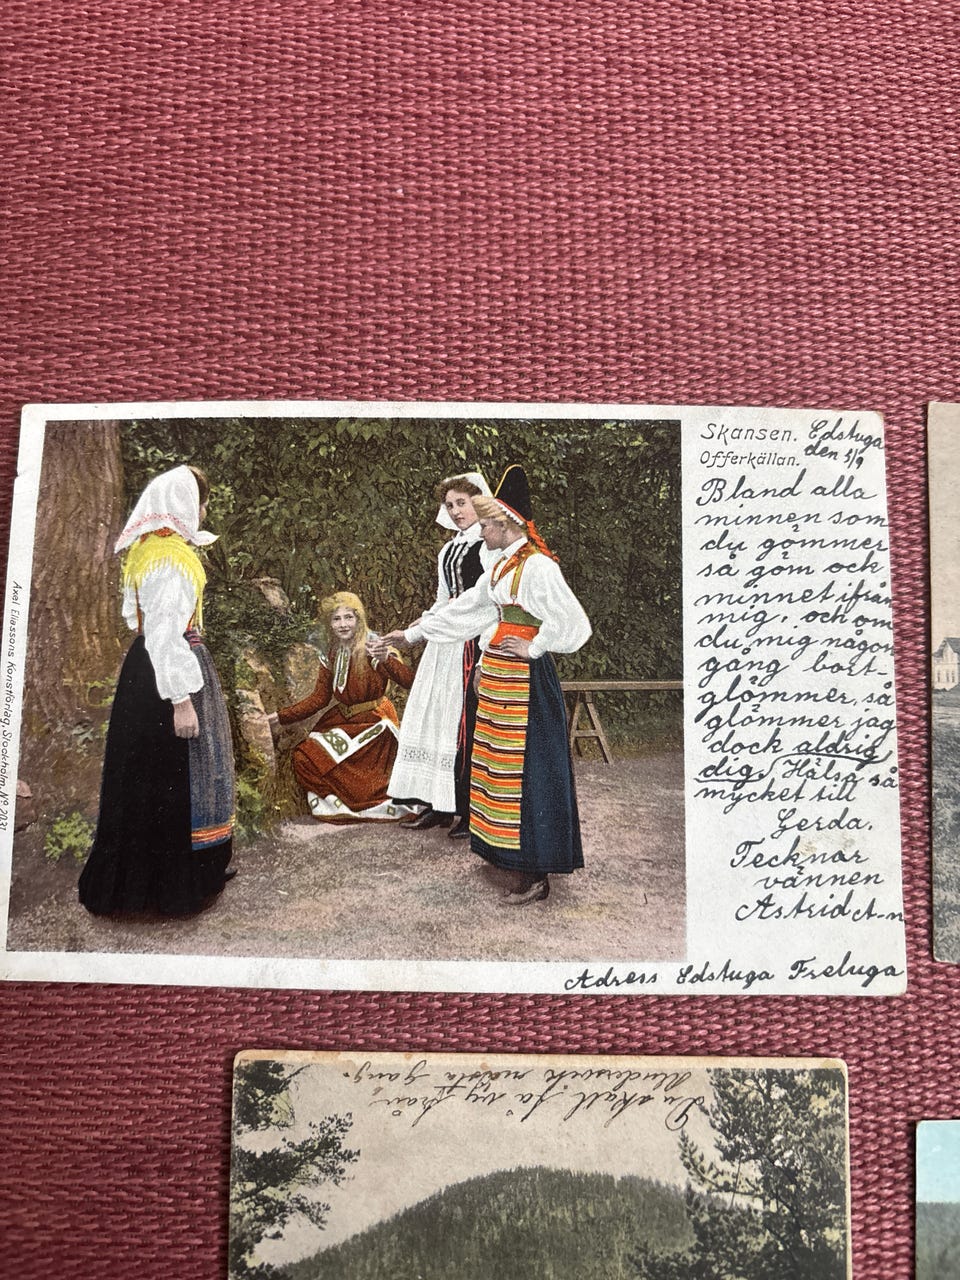 Skansen.
Offerkällan.
Edstuga
den 5/9
Bland alla
minnen som
du gömmer
så göm ock
minnet ifrån
mig, och om
du mig någon
gång bort-
glömmer, så
glömmer jag
dock aldrig
dig. Hälsa så
mycket till
Gerda.
Tecknar
vännen
Astrid
Adress Edstuga Freluga
Axel Eliassons Konstförlag, Stockholm. Nº 2031
Du skall få vy från
nästa gång.